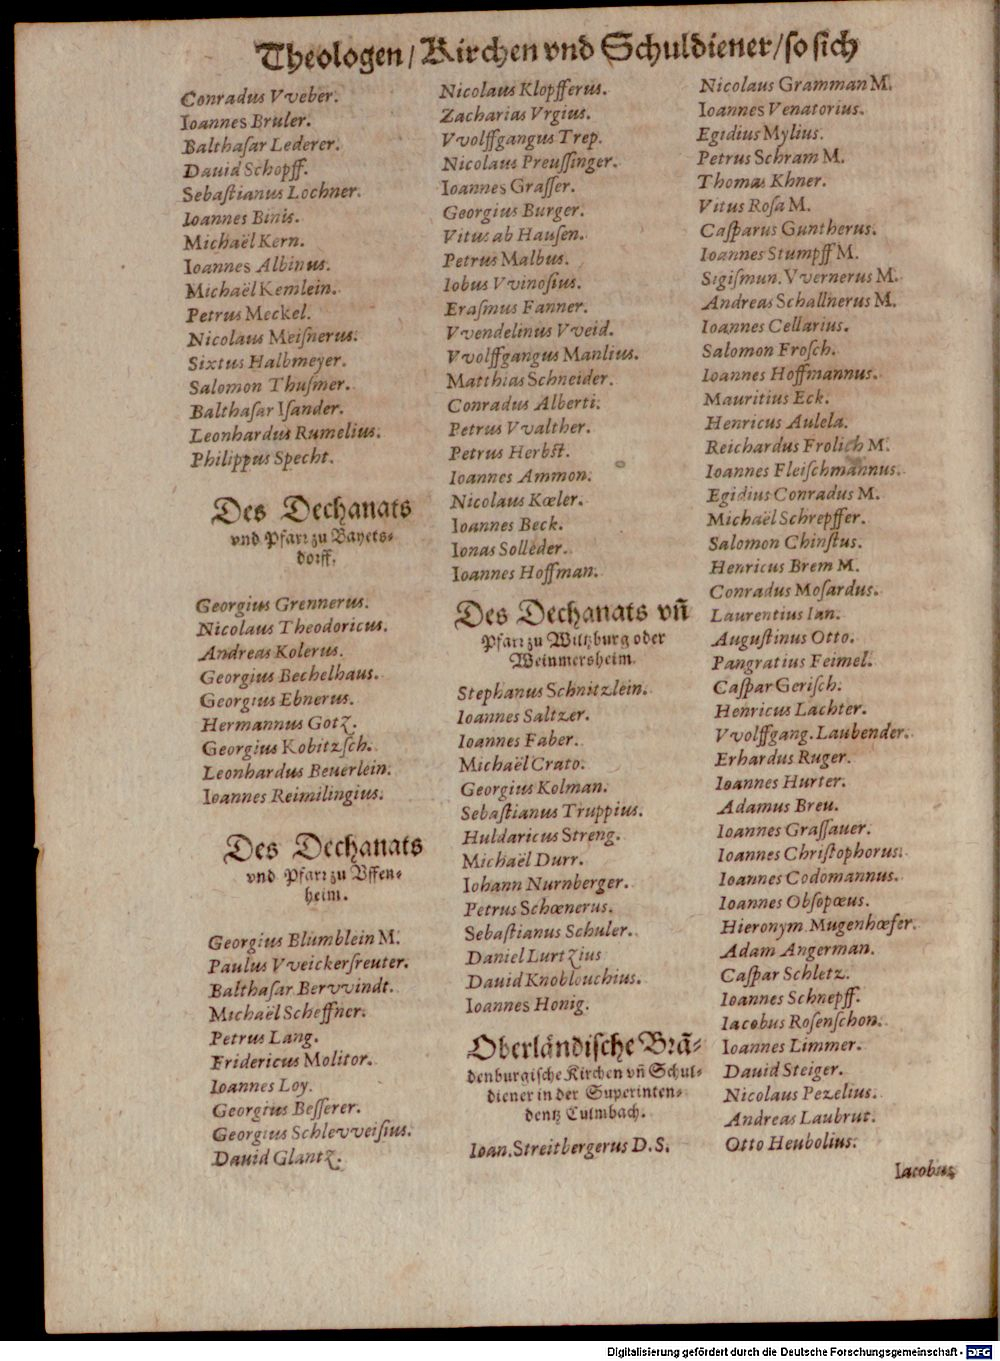 Theologen / Kirchen vnd Schuldiener / so sich
Conradus VVeber.
Ioannes Bruler.
Balthaſar Lederer.
Dauid Schopff.
Sebaſtianus Lochner.
Ioannes Binis.
Michaël Kern.
Ioannes Albinus.
Michaël Kemlein.
Petrus Meckel.
Nicolaus Meiſnerus.
Sixtus Halbmeyer.
Salomon Thuſmer.
Balthaſar Iſander.
Leonhardus Rumelius.
Philippus Specht.
Des Dechanats
vnd Pfarꝛ zu Bayers-
dorff.
Georgius Grennerus.
Nicolaus Theodoricus.
Andreas Kolerus.
Georgius Bechelhaus.
Georgius Ebnerus.
Hermannus Gotz.
Georgius Kobitzſch.
Leonhardus Beuerlein.
Ioannes Reimilingius.
Des Dechanats
vnd Pfarꝛ zu Vffen-
heim.
Georgius Blumblein M.
Paulus VVeickerſreuter.
Balthaſar Bervvindt.
Michaël Scheffner.
Petrus Lang.
Fridericus Molitor.
Ioannes Loy.
Georgius Beſſerer.
Georgius Schlevveiſius.
Dauid Glantz.
Nicolaus Klopfferus.
Zacharias Vrgius.
VVolffgangus Trep.
Nicolaus Preuſſinger.
Ioannes Graſſer.
Georgius Burger.
Vitus ab Hauſen.
Petrus Malbus.
Iobus VVinoſius.
Eraſmus Fanner.
VVendelinus VVeid.
VVolffgangus Manlius.
Matthias Schneider.
Conradus Alberti.
Petrus VValther.
Petrus Herbſt.
Ioannes Ammon.
Nicolaus Kœler.
Ioannes Beck.
Ionas Solleder.
Ioannes Hoffman.
Des Dechanats vñ
Pfarꝛ zu Wiltzburg oder
Weinmersheim.
Stephanus Schnitzlein.
Ioannes Saltzer.
Ioannes Faber.
Michaël Crato.
Georgius Kolman.
Sebaſtianus Truppius.
Huldaricus Streng.
Michaël Durr.
Iohann Nurnberger.
Petrus Schœnerus.
Sebaſtianus Schuler.
Daniel Lurtzius
Dauid Knoblouchius.
Ioannes Honig.
Oberländische Brã-
denburgische Kirchen vñ Schul-
diener in der Superinten-
dentz Culmbach.
Ioan. Streitbergerus D. S.
Nicolaus Gramman M.
Ioannes Venatorius.
Egidius Mylius.
Petrus Schram M.
Thomas Khner.
Vitus Roſa M.
Caſparus Guntherus.
Ioannes Stumpff M.
Sigiſmun. VVernerus M.
Andreas Schallnerus M.
Ioannes Cellarius.
Salomon Froſch.
Ioannes Hoffmannus.
Mauritius Eck.
Henricus Aulela.
Reichardus Frolich M.
Ioannes Fleiſchmannus.
Egidius Conradus M.
Michaël Schrepffer.
Salomon Chinſtus.
Henricus Brem M.
Conradus Moſardus.
Laurentius Ian.
Auguſtinus Otto.
Pangratius Feimel.
Caſpar Geriſch.
Henricus Lachter.
VVolffgang. Laubender.
Erhardus Ruger.
Ioannes Hurter.
Adamus Breu.
Ioannes Graſſauer.
Ioannes Chriſtophorus.
Ioannes Codomannus.
Ioannes Obſopœus.
Hieronym. Mugenhœfer.
Adam Angerman.
Caſpar Schletz.
Ioannes Schnepff.
Iacobus Roſenſchon.
Ioannes Limmer.
Dauid Steiger.
Nicolaus Pezelius.
Andreas Laubrut.
Otto Heubolius.
Iacobus
Digitalisierung gefördert durch die Deutsche Forschungsgemeinschaft - DFG